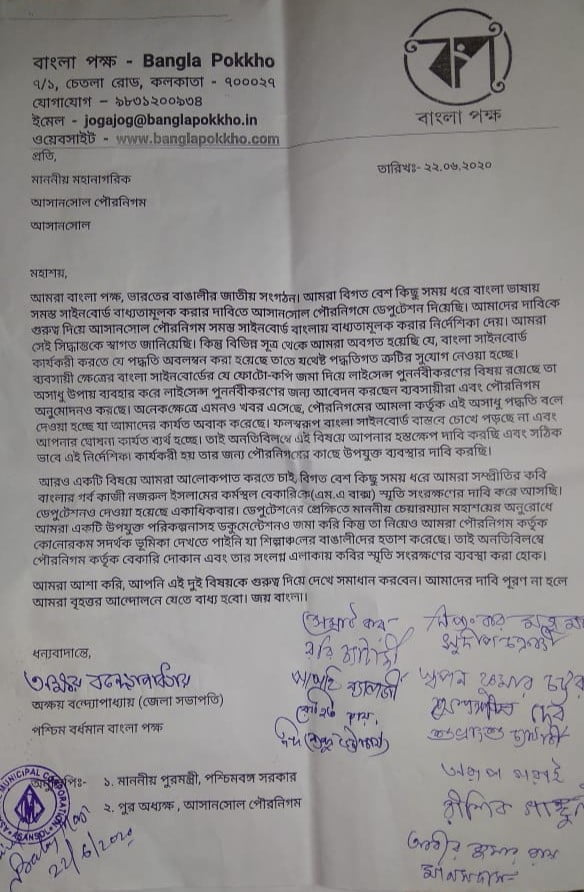 বাংলা পক্ষ - Bangla Pokkho
৭/১, চেতলা রোড, কলকাতা - ৭০০০২৭
যোগাযোগ - ৯৮৩১২০০৯৩৪
ইমেল - jogajog@banglapokkho.in
ওয়েবসাইট - www.banglapokkho.com
বাংলা পক্ষ
প্রতি,
তারিখঃ- ২২.০৬.২০২০
মাননীয় মহানাগরিক
আসানসোল পৌরনিগম
আসানসোল
মহাশয়,
আমরা বাংলা পক্ষ, ভারতের বাঙালীর জাতীয় সংগঠন। আমরা বিগত বেশ কিছু সময় ধরে বাংলা ভাষায়
সমস্ত সাইনবোর্ড বাধ্যতামূলক করার দাবিতে আসানসোল পৌরনিগমে ডেপুটেশন দিয়েছি। আমাদের দাবিকে
গুরুত্ব দিয়ে আসানসোল পৌরনিগম সমস্ত সাইনবোর্ড বাংলায় বাধ্যতামূলক করার নির্দেশিকা দেয়। আমরা
সেই সিদ্ধান্তকে স্বাগত জানিয়েছি। কিন্তু বিভিন্ন সূত্র থেকে আমরা অবগত হয়েছি যে, বাংলা সাইনবোর্ড
কার্যকরী করতে যে পদ্ধতি অবলম্বন করা হয়েছে তাতে যথেষ্ট পদ্ধতিগত ত্রুটির সুযোগ নেওয়া হচ্ছে।
ব্যবসায়ী ক্ষেত্রের বাংলা সাইনবোর্ডের যে ফোটো-কপি জমা দিয়ে লাইসেন্স পুনর্নবীকরণের বিষয় রয়েছে তা
অসাধু উপায় ব্যবহার করে লাইসেন্স পুনর্নবীকরণের জন্য আবেদন করছেন ব্যবসায়ীরা এবং পৌরনিগম
অনুমোদনও করছে। অনেকক্ষেত্রে এমনও খবর এসেছে, পৌরনিগমের আমলা কর্তৃক এই অসাধু পদ্ধতি বলে
দেওয়া হচ্ছে যা আমাদের কার্যত অবাক করেছে। ফলস্বরূপ বাংলা সাইনবোর্ড বাস্তবে চোখে পড়ছে না এবং
আপনার ঘোষনা কার্যত ব্যর্থ হচ্ছে। তাই অনতিবিলম্বে এই বিষয়ে আপনার হস্তক্ষেপ দাবি করছি এবং সঠিক
ভাবে এই নির্দেশিকা কার্যকরী হয় তার জন্য পৌরনিগমের কাছে উপযুক্ত ব্যবস্থার দাবি করছি।
আরও একটি বিষয়ে আমরা আলোকপাত করতে চাই, বিগত বেশ কিছু সময় ধরে আমরা সম্প্রীতির কবি
বাংলার গর্ব কাজী নজরুল ইসলামের কর্মস্থল বেকারিকে(এম.এ বাক্স) স্মৃতি সংরক্ষণের দাবি করে আসছি।
ডেপুটেশনও দেওয়া হয়েছে একাধিকবার। ডেপুটেশনের প্রেক্ষিতে মাননীয় চেয়ারম্যান মহাশয়ের অনুরোধে
আমরা একটি উপযুক্ত পরিকল্পনাসহ ডকুমেন্টেশনও জমা করি কিন্তু তা নিয়েও আমরা পৌরনিগম কর্তৃক
কোনোরকম সদর্থক ভূমিকা দেখতে পাইনি যা শিল্পাঞ্চলের বাঙালীদের হতাশ করেছে। তাই অনতিবিলম্বে
পৌরনিগম কর্তৃক বেকারি দোকান এবং তার সংলগ্ন এলাকায় কবির স্মৃতি সংরক্ষণের ব্যবস্থা করা হোক।
আমরা আশা করি, আপনি এই দুই বিষয়কে গুরুত্ব দিয়ে দেখে সমাধান করবেন। আমাদের দাবি পূরণ না হলে
আমরা বৃহত্তর আন্দোলনে যেতে বাধ্য হবো। জয় বাংলা।
ধন্যবাদান্তে,
অক্ষয় বন্দ্যোপাধ্যায়
অক্ষয় বন্দ্যোপাধ্যায় (জেলা সভাপতি)
পশ্চিম বর্ধমান বাংলা পক্ষ
১. মাননীয় পুরমন্ত্রী, পশ্চিমবঙ্গ সরকার
২. পুর অধ্যক্ষ, আসানসোল পৌরনিগম
MUNICIPAL CORPORATION
22/6/2020